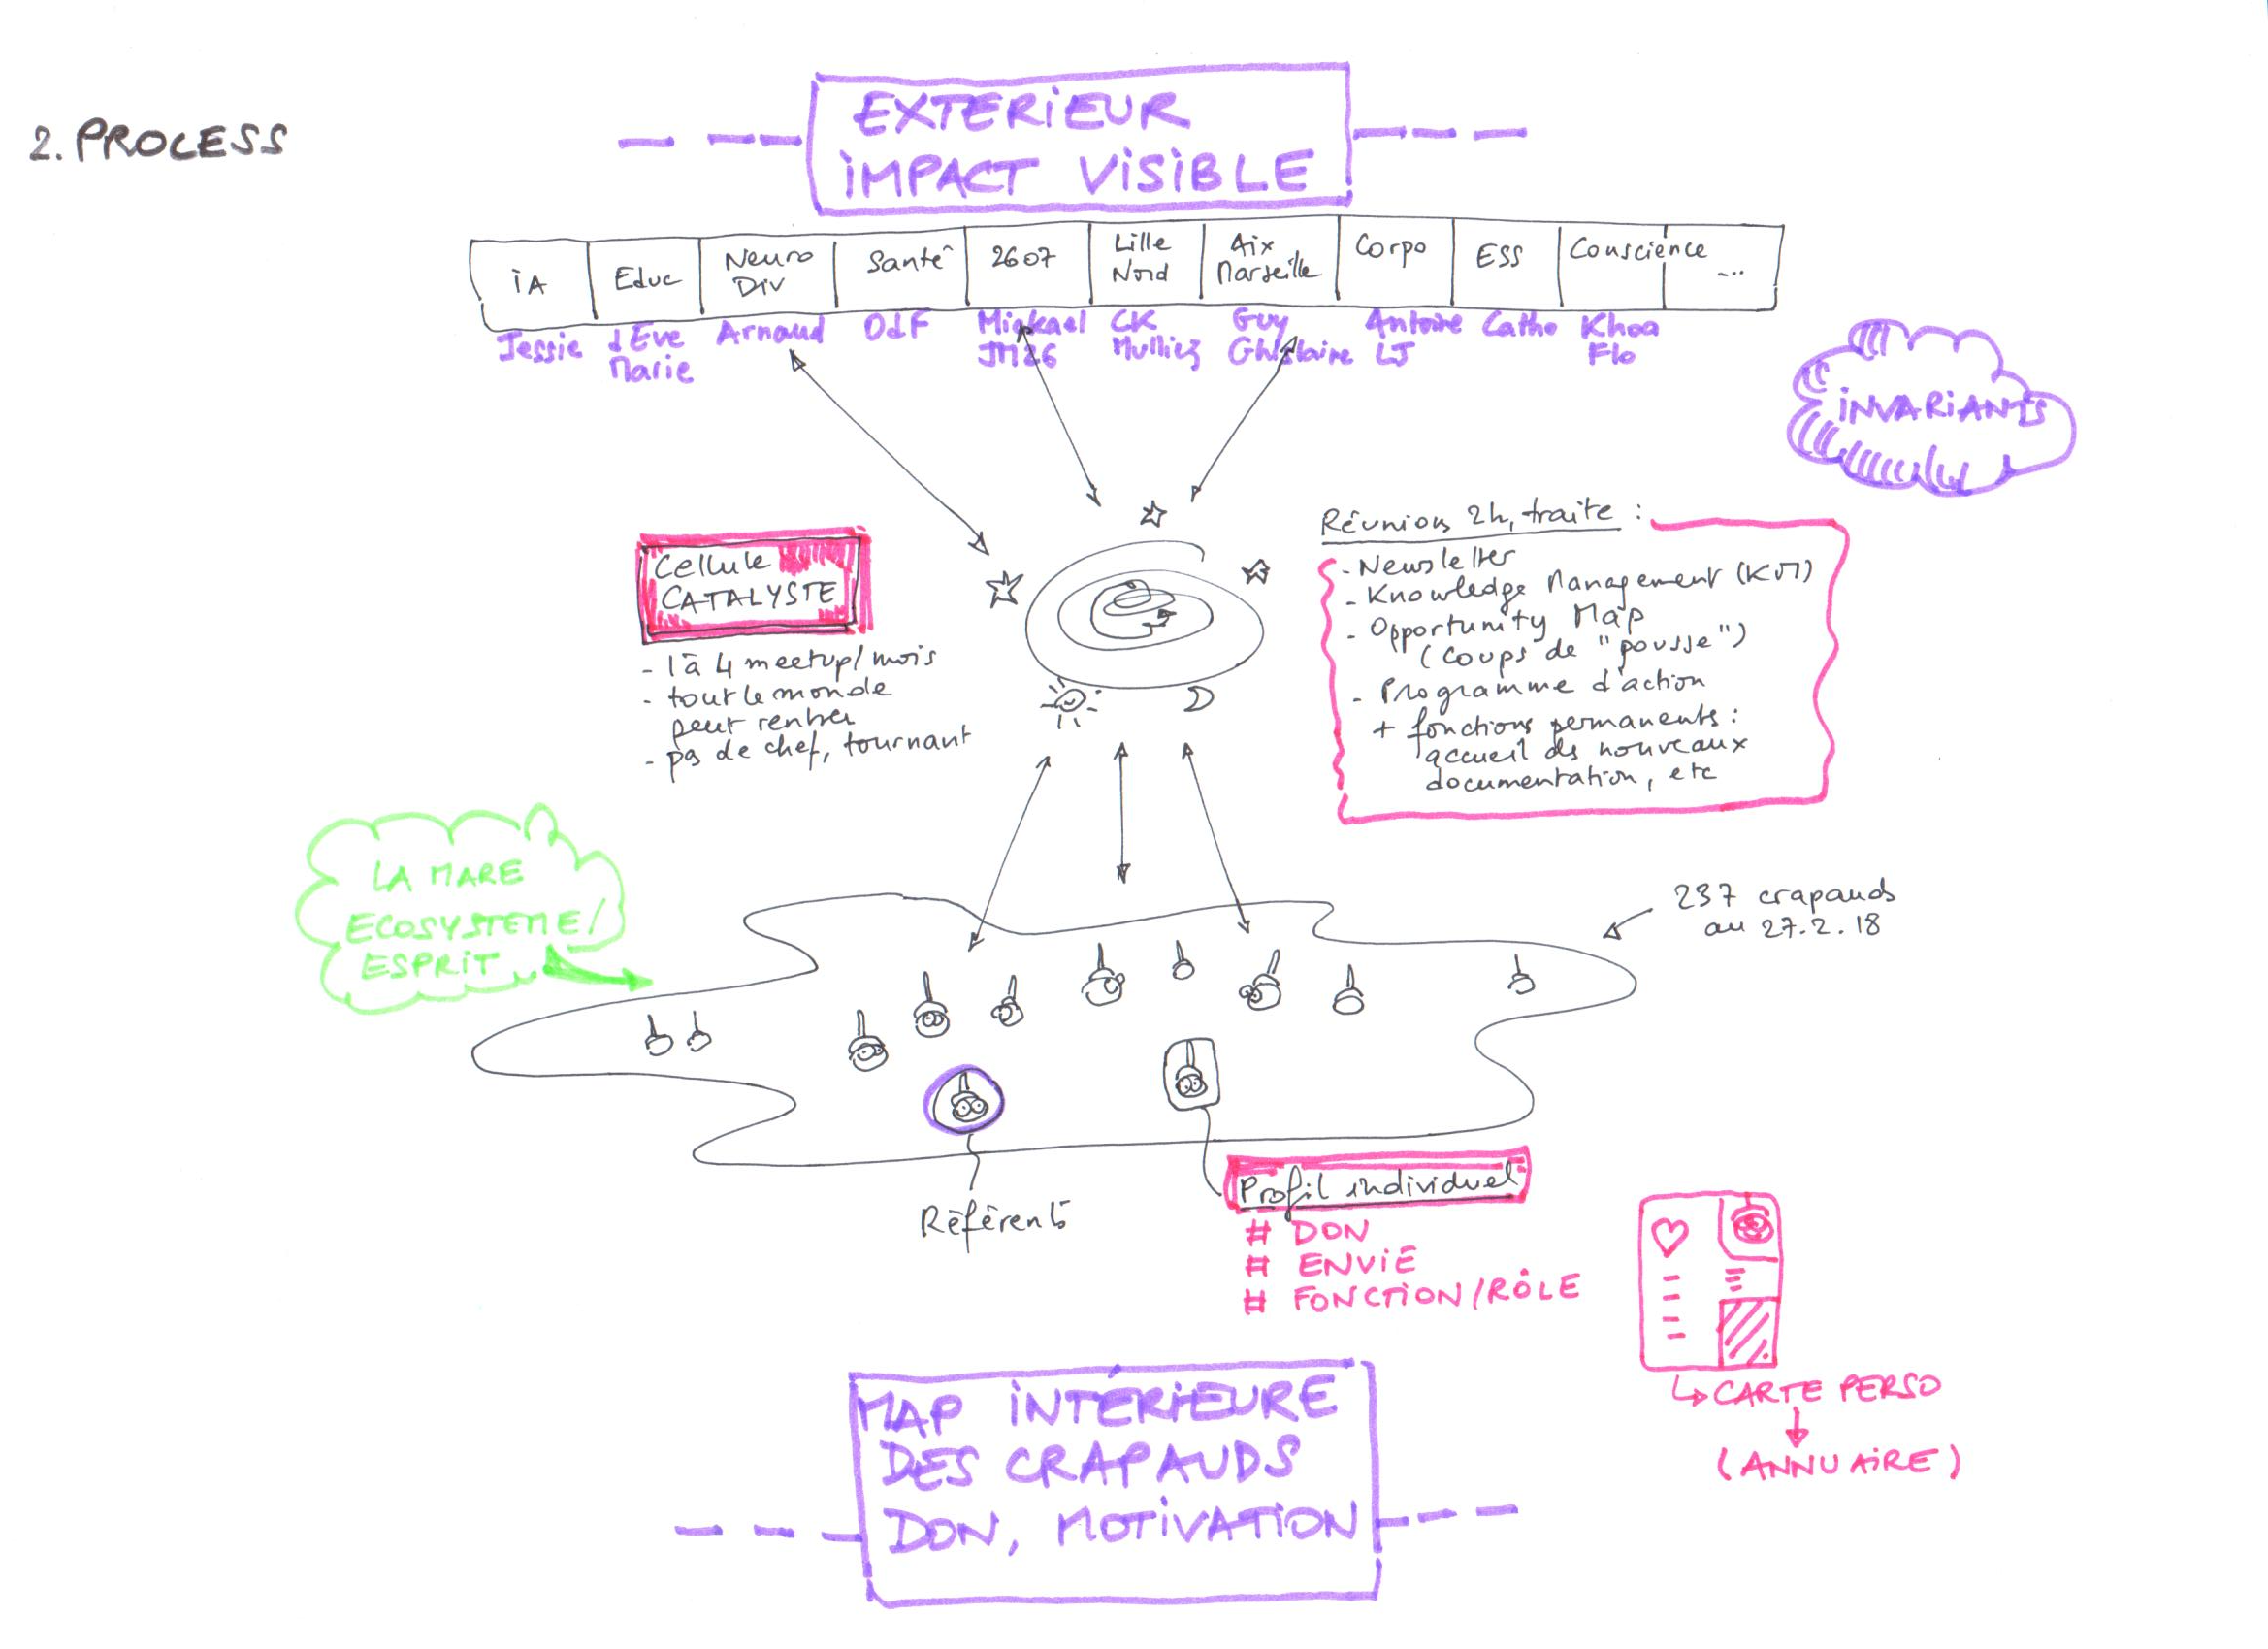 2. PROCESS
EXTERIEUR
IMPACT VISIBLE
IA
Educ
Neuro
Div
Santé
2607
Lille
Nord
Aix
Marseille
Corpo
ESS
Conscience
...
Jessie
d'Eve
Marie
Arnaud
OdF
Mickael
JM26
CK
Mulliez
Guy
Ghislaine
Antoine
LJ
Catho
Khoa
Flo
INVARIANTS
Cellule
CATALYSTE
- 1 à 4 meetup/mois
- tout le monde
peut rentrer
- pas de chef, tournant
Réunion 2h, traite :
- Newsletter
- Knowledge Management (KM)
- Opportunity Map
(coups de "pousse")
- Programme d'action
+ fonctions permanents :
accueil des nouveaux
documentation, etc
LA MARE
ECOSYSTEME/
ESPRIT
237 crapauds
au 27.2.18
Référent
Profil individuel
# DON
# ENVIE
# FONCTION/RÔLE
CARTE PERSO
(ANNUAIRE)
MAP INTÉRIEURE
DES CRAPAUDS
DON, MOTIVATION